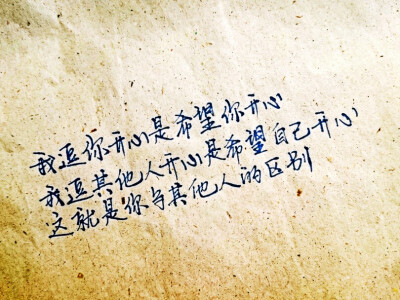 我逗你开心是希望你开心
我逗其他人开心是希望自己开心
这就是你与其他人的区别